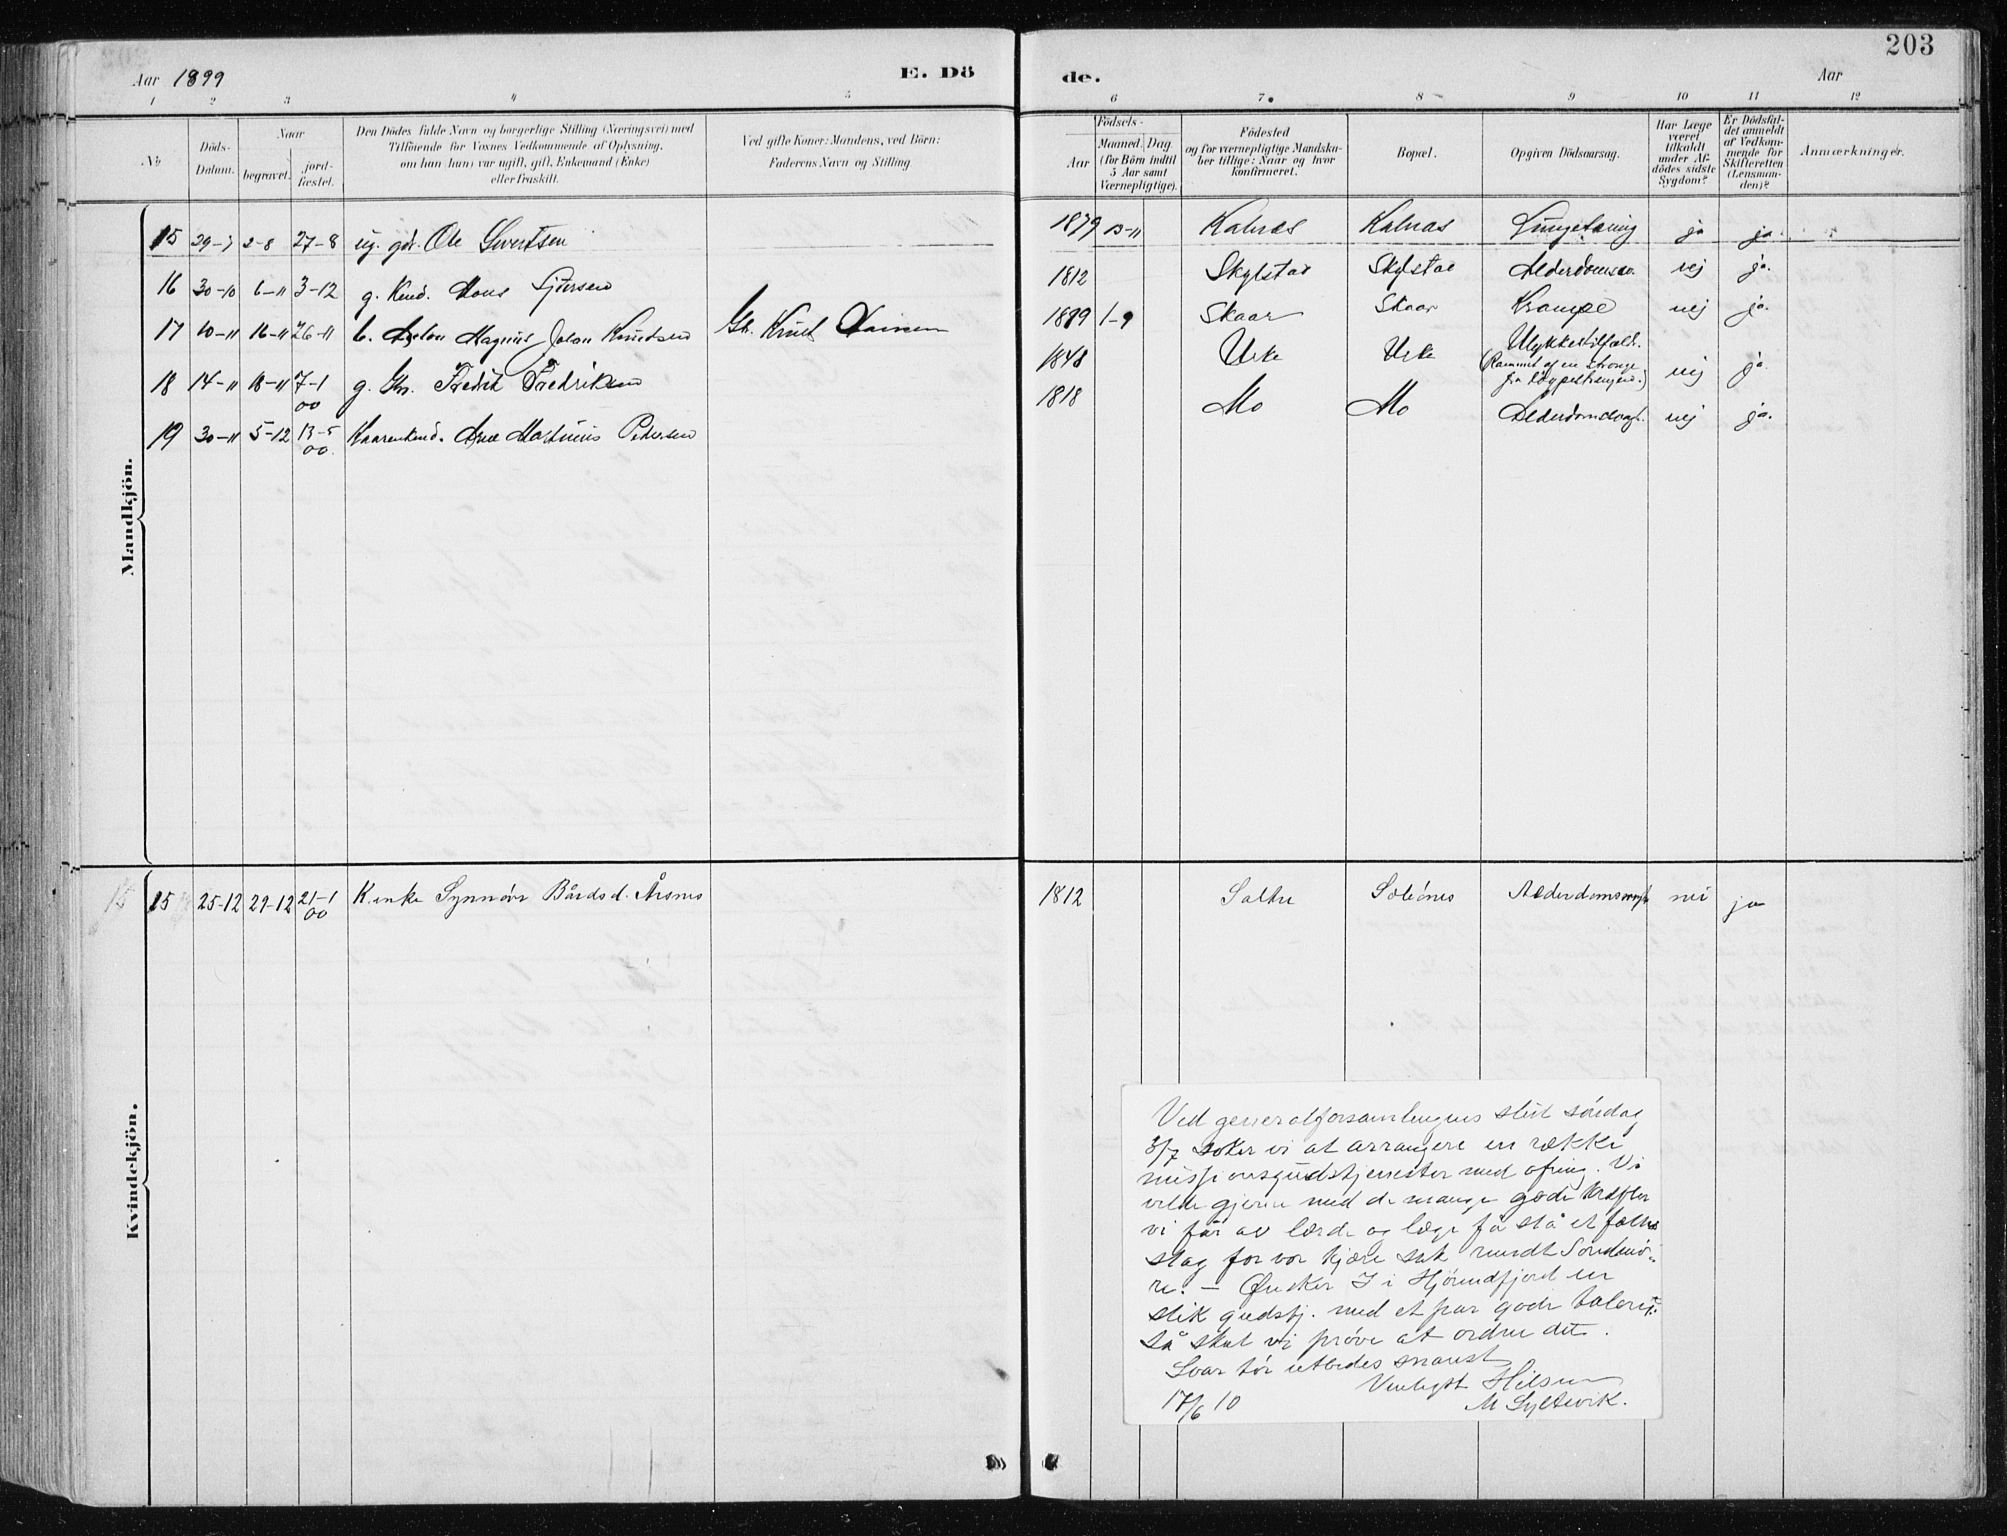 203
Aar 1899
E. Dö
de.
Aar
1 2 3 4 5
6 7 8 9 10 11 12
No
Döds-
Datum.
Naar
begravet.
jord-
fæstet.
Den Dödes fulde Navn og borgerlige Stilling (Næringsvei) med
Tilföiende for Voxnes Vedkommende af Oplysning,
om han (hun) var ugift, gift, Enkemand (Enke)
eller fraskilt.
Ved gifte Koner: Mandens, ved Börn:
Faderens Navn og Stilling.
Födsels-
Aar
Maaned. Dag.
(for Börn indtil
5 Aar samt
Værnepligtige).
Födested
og for værnepligtige Mandska-
ber tillige: Naar og hvor
konfirmeret.
Bopæl.
Opgiven Dödsaarsag.
Har Læge
været
tilkaldt
under Af-
dödes sidste
Sygdom?
Er Dödsfal-
det anmeldt
af Vedkom-
mende for
Skifteretten
(Lensman-
den)?
Anmærkninger.
Mandkjön.
15 29-7 2-8 27-8 ug. gdr. Ole Sivertsen 1879 Kalnæs Kalnæs Lungetæring ja ja
16 30-10 6-11 3-12 g. Kaud. Mons 1812 Skylstad Skylstad nej ja.
17 10-11 16-11 26-11 b. Anton Magnus Johan Knudsen Gbr. Knut 1899 1-9 Skaar Skaar Krampe nej ja.
18 14-11 18-11 7-1 00 g. Gbr. Fredrik Fredriksen 1848 Urke Urke Ulykkestilfælde. (Rammet af en Strange fra Løypestrengen.) nej ja.
19 30-11 5-12 13-5 00 Kaarenkmd. Arne Martinus Petersen 1818 Mo Mo Alderdomssvagh. nej ja.
Kvindekjön.
15 25-12 29-12 21-1 00 K. enke Synnöve Bårdsd. Årsnes 1812 Sæbönes Alderdomssvagh nei ja
Ved generalforsamlingens slut söndag
3/7 söker vi at arrangere en række
missionsgudstjenester med ofring. Vi
vilde gjerne med de mange gode kræfter
vi får av lærde og læge få slå et fælles
slag for vor kjære sak rundt Söndmö-
re. – Önsker I i Hjörundfjord en
slik gudstj. med et par gode talere:
så skal vi pröve at ordne det.
Svar bör utbedes snarest
Venligst Hilsen
17/6 10 M Syltevik.